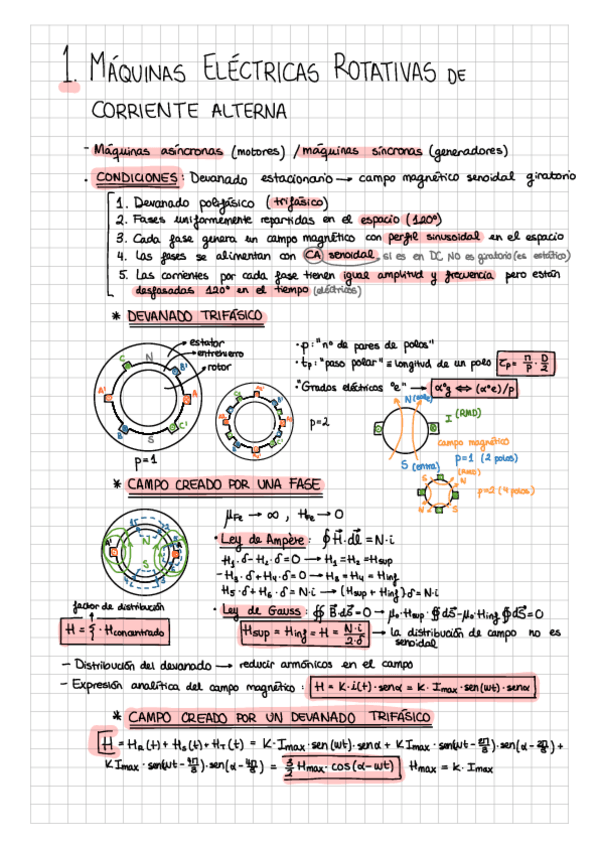 1. MÁQUINAS ELÉCTRICAS ROTATIVAS DE
CORRIENTE ALTERNA
- Máquinas asíncronas (motores) / máquinas síncronas (generadores)
· CONDICIONES: Devanado estacionario → campo magnético senoidal giratorio
1. Devanado polifásico (trifásico)
2. Fases uniformemente repartidas en el espacio (120º)
3. Cada fase genera un campo magnético con perfil sinusoidal en el espacio
4. Las fases se alimentan con CA senoidal, si es en DC NO es giratorio (es estático)
5. Las corrientes por cada fase tienen igual amplitud y frecuencia pero están
desfasadas 120º en el tiempo (eléctricos)
* DEVANADO TRIFÁSICO
estator
entrehierro
rotor
C N B' A' A B S C'
p=1
p=2
· p: "nº de pares de polos"
· tp: "paso polar" ≡ longitud de un polo τp = π/p · D/2
· "Grados eléctricos "e" → αºg ⇔ (αºe)/p
N (sale)
I (RMD)
campo magnético
S (entra) p=1 (2 polos)
(RMD)
N S N S
p=2 (4 polos)
* CAMPO CREADO POR UNA FASE
N S
μFe → ∞ , HFe → 0
· Ley de Ampère: ∮ H·dl = N·i
H1·δ - H2·δ = 0 → H1 = H2 = Hsup
-H3·δ + H4·δ = 0 → H3 = H4 = Hinf
H5·δ + H6·δ = N·i → (Hsup + Hinf)·δ = N·i
factor de distribución
H = ξ · Hconcentrado
· Ley de Gauss: ∯ B·ds = 0 → μ0·Hsup·∯ds - μ0·Hinf ∯ds = 0
Hsup = Hinf = H = N·i / 2·δ → la distribución de campo no es
senoidal
- Distribución del devanado → reducir armónicos en el campo
- Expresión analítica del campo magnético: H = K·i(t)·senα = K·Imax·sen(wt)·senα
* CAMPO CREADO POR UN DEVANADO TRIFÁSICO
H = HR(t) + HS(t) + HT(t) = K·Imax·sen(wt)·senα + K·Imax·sen(wt - 2π/3)·sen(α - 2π/3) +
K·Imax·sen(wt - 4π/3)·sen(α - 4π/3) = 3/2 Hmax·cos(α-wt) Hmax = K·Imax